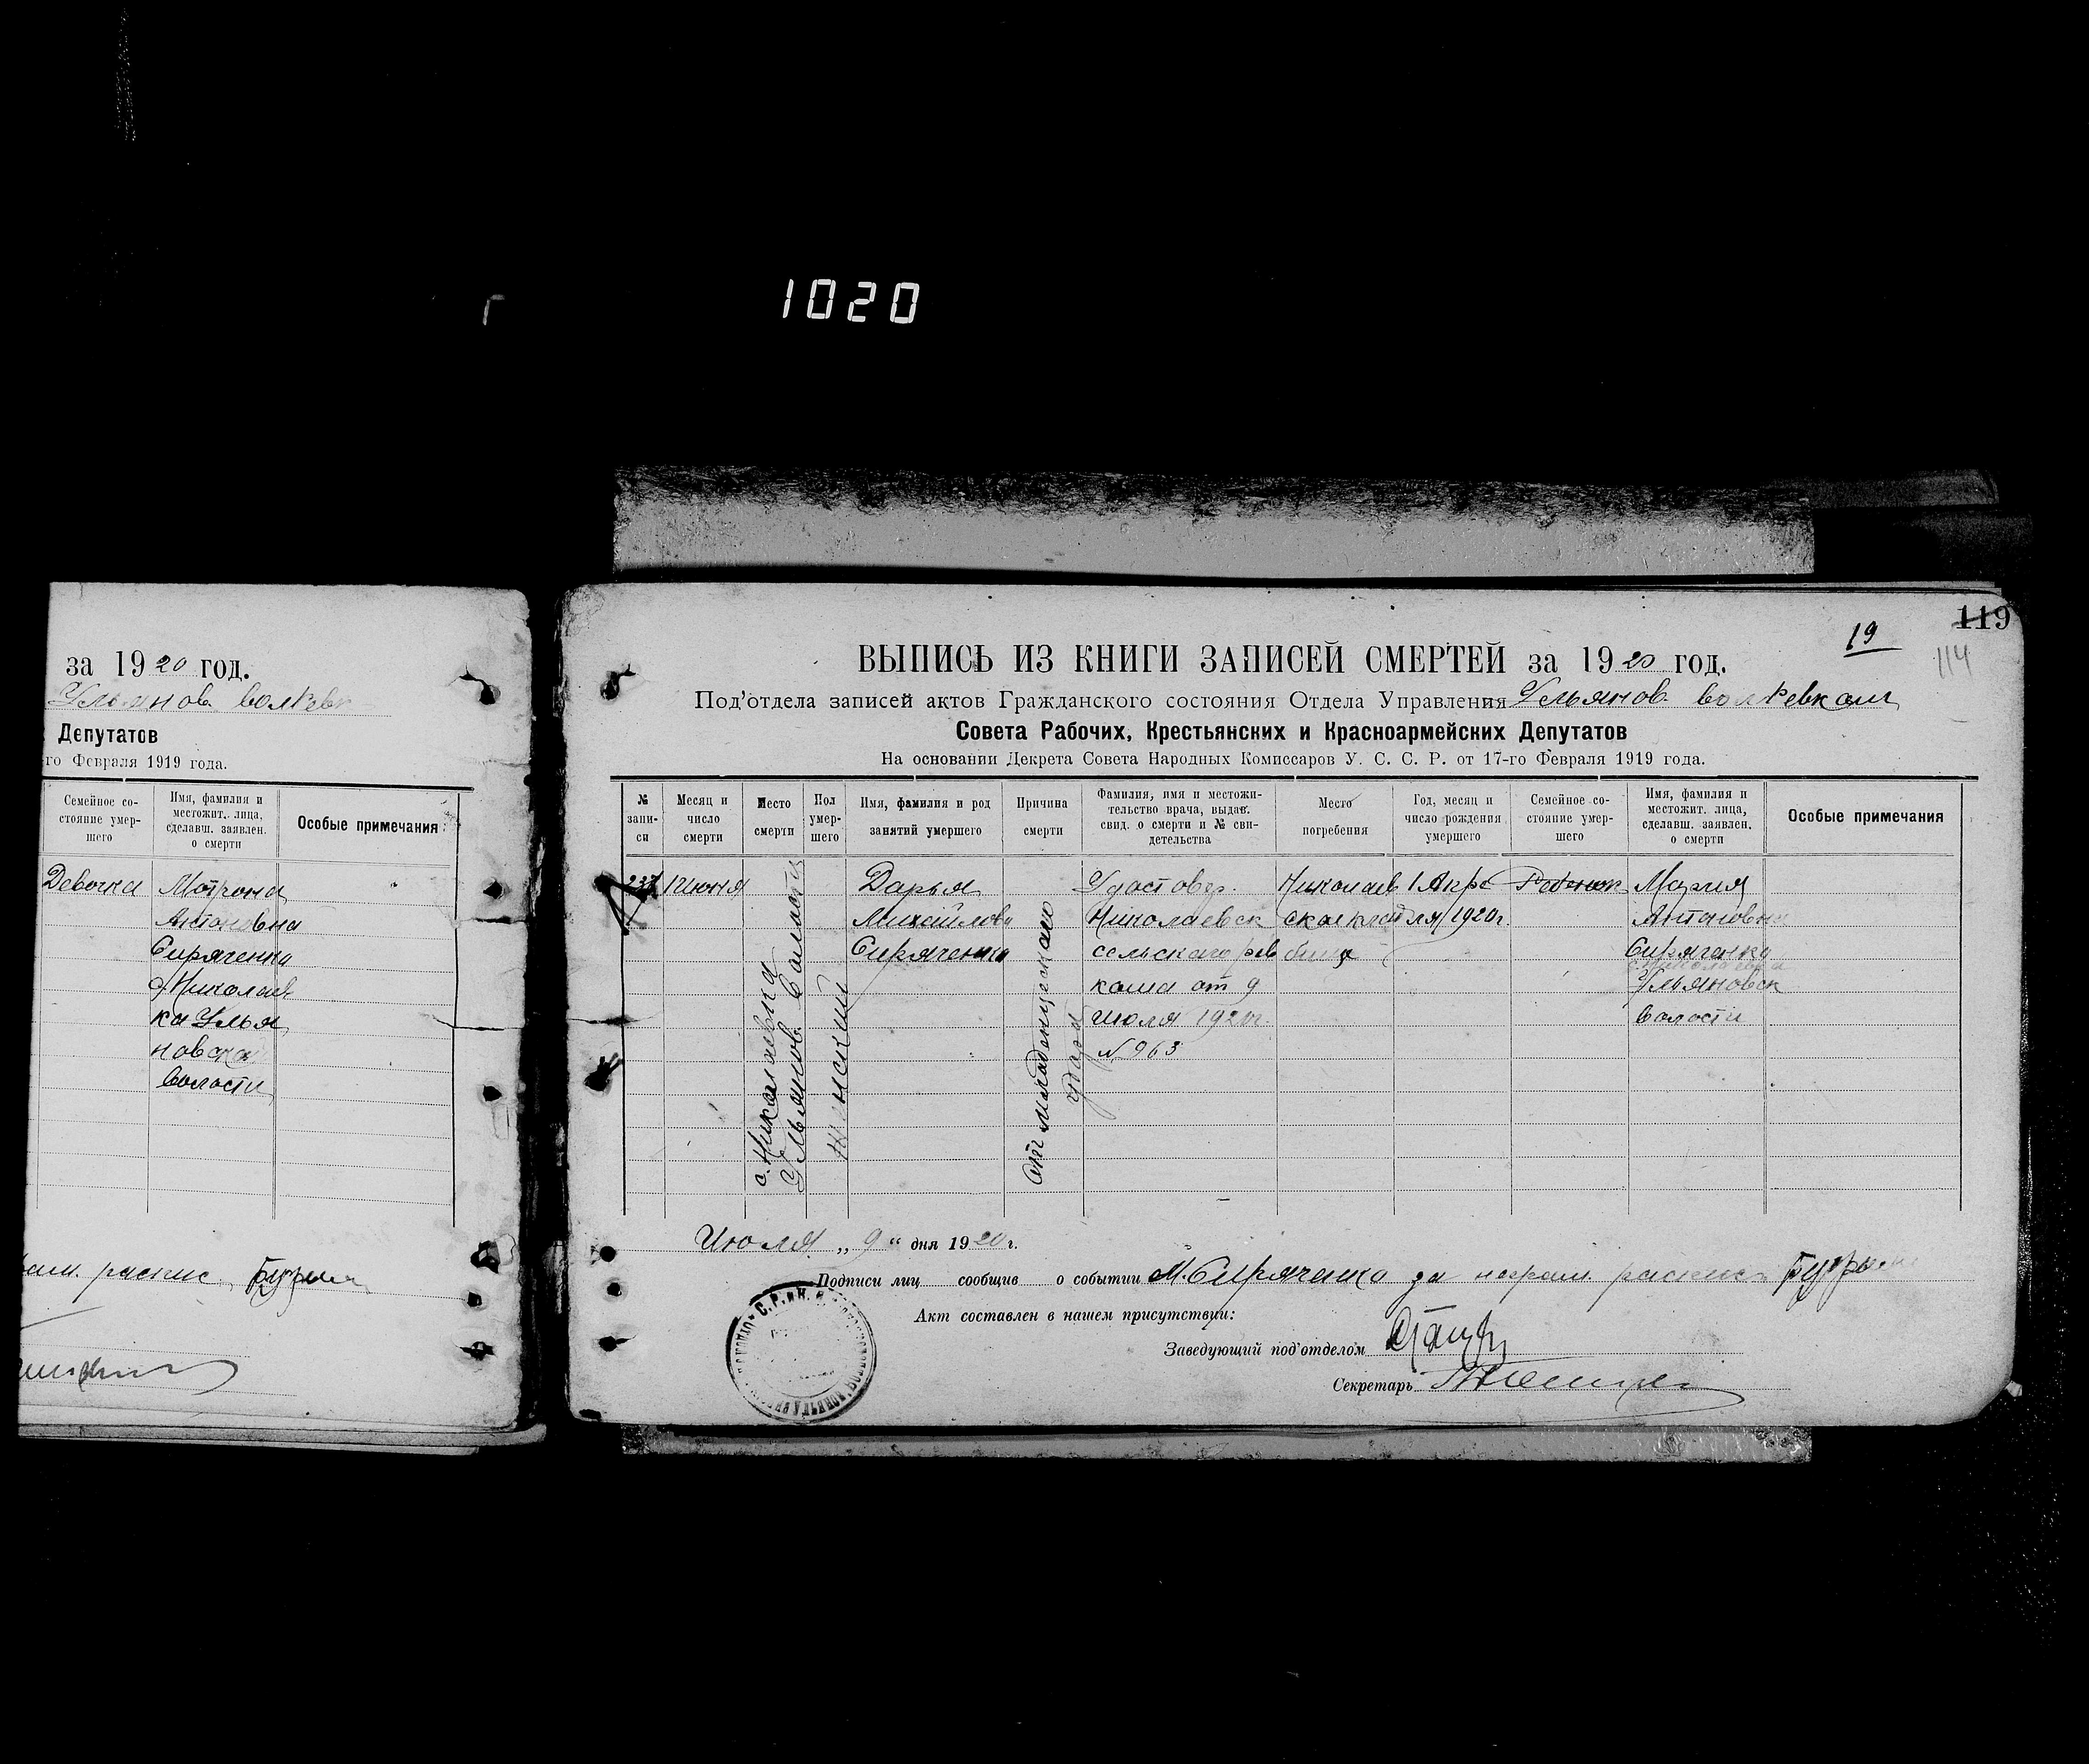 1020
за 1920 год.
Ульянов. волРевк
Депутатов
го Февраля 1919 года.
Семейное со-
стояние умер-
шего
Имя, фамилия и
местожит. лица,
сделавш. заявлен.
о смерти
Особые примечания
Девочка
Мотрона
Антоновна
Сиряченко
с. Николаев
ка Улья
новской
волости
119
19
114
ВЫПИСЬ ИЗ КНИГИ ЗАПИСЕЙ СМЕРТЕЙ за 1920 год.
Под'отдела записей актов Гражданского состояния Отдела Управления Ульянов. волРевком
Совета Рабочих, Крестьянских и Красноармейских Депутатов
На основании Декрета Совета Народных Комиссаров У. С. С. Р. от 17-го Февраля 1919 года.
№
запи-
си
Месяц и
число
смерти
Место
смерти
Пол
умер-
шего
Имя, фамилия и род
занятий умершего
Причина
смерти
Фамилия, имя и местожи-
тельство врача, выдав.
свид. о смерти и № сви-
детельства
Место
погребения
Год, месяц и
число рождения
умершего
Семейное со-
стояние умер-
шего
Имя, фамилия и
местожит. лица,
сделавш. заявлен.
о смерти
Особые примечания
1 Июня
с. Николаевка
Ульянов. волости
Женский
Дарья
Михайлова
Сиряченко
от младенческаго
Удостовер.
Николаевск
сельскаго рев
кома от 9
июля 1920г.
№ 963
Николаев
ское клад
бище
1 Апре
ля 1920г.
Ребенок
Мария
Антоновна
Сиряченко
с. Николаевка
Ульяновск
волости
Июля „ 9 “ дня 1920 г.
Подписи лиц сообщив о событии М. Сиряченко за неграм. распис.
Акт составлен в нашем присутствии:
Заведующий под'отделом
Секретарь